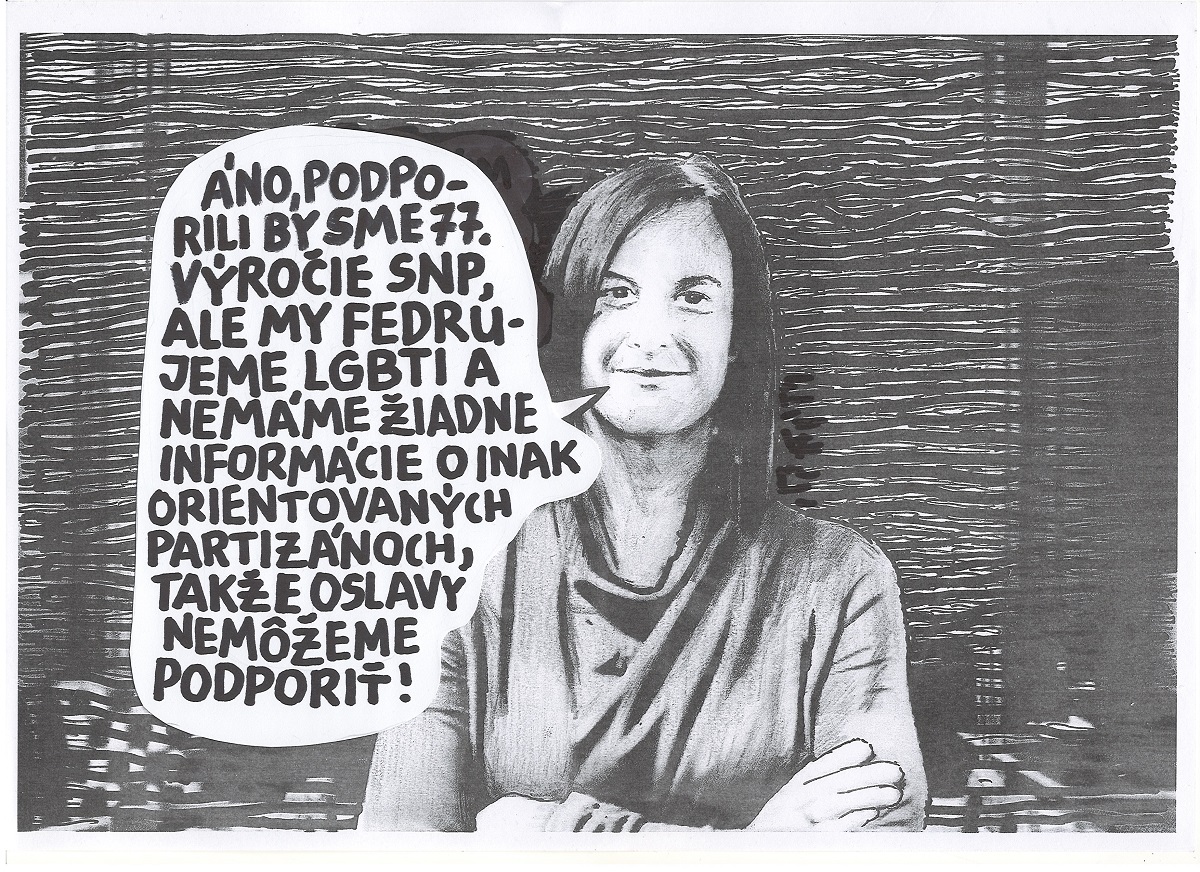 ÁNO, PODPO-
RILI BY SME 77.
VÝROČIE SNP,
ALE MY FEDRU-
JEME LGBTI A
NEMÁME ŽIADNE
INFORMÁCIE O INAK
ORIENTOVANÝCH
PARTIZÁNOCH,
TAKŽE OSLAVY
NEMÔŽEME
PODPORIŤ!